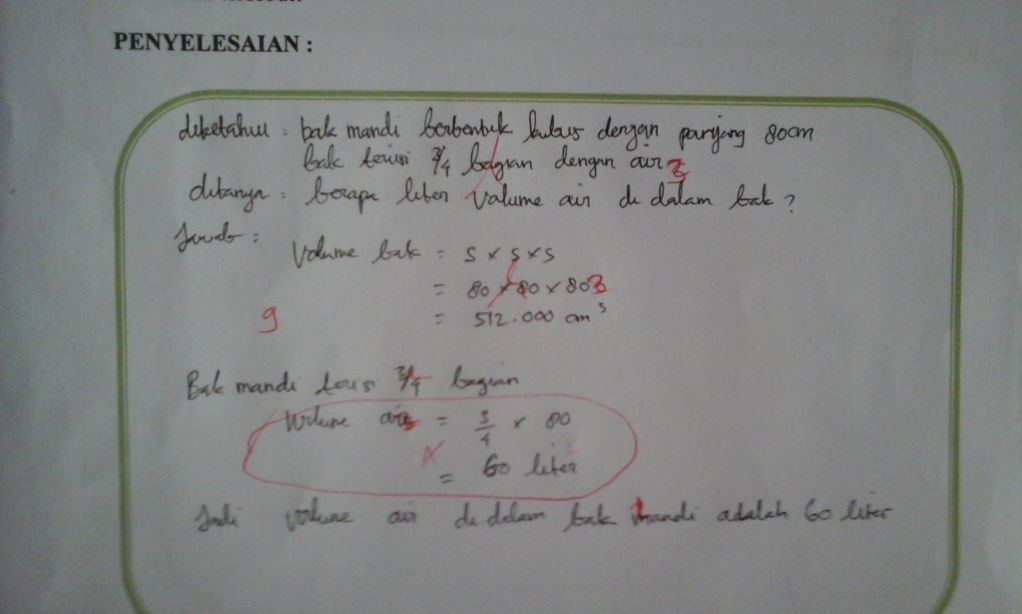 PENYELESAIAN :
diketahui : bak mandi berbentuk kubus dengan panjang 80cm
bak terisi 3/4 bagian dengan air 3
ditanya : berapa liter Volume air di dalam bak ?
Jawab :
Volume bak = s x s x s
= 80 x 80 x 80 3
= 512.000 cm³
9
Bak mandi terisi 3/4 bagian
Volume air = 3/4 x 80
= 60 liter
Jadi volume air di dalam bak mandi adalah 60 liter